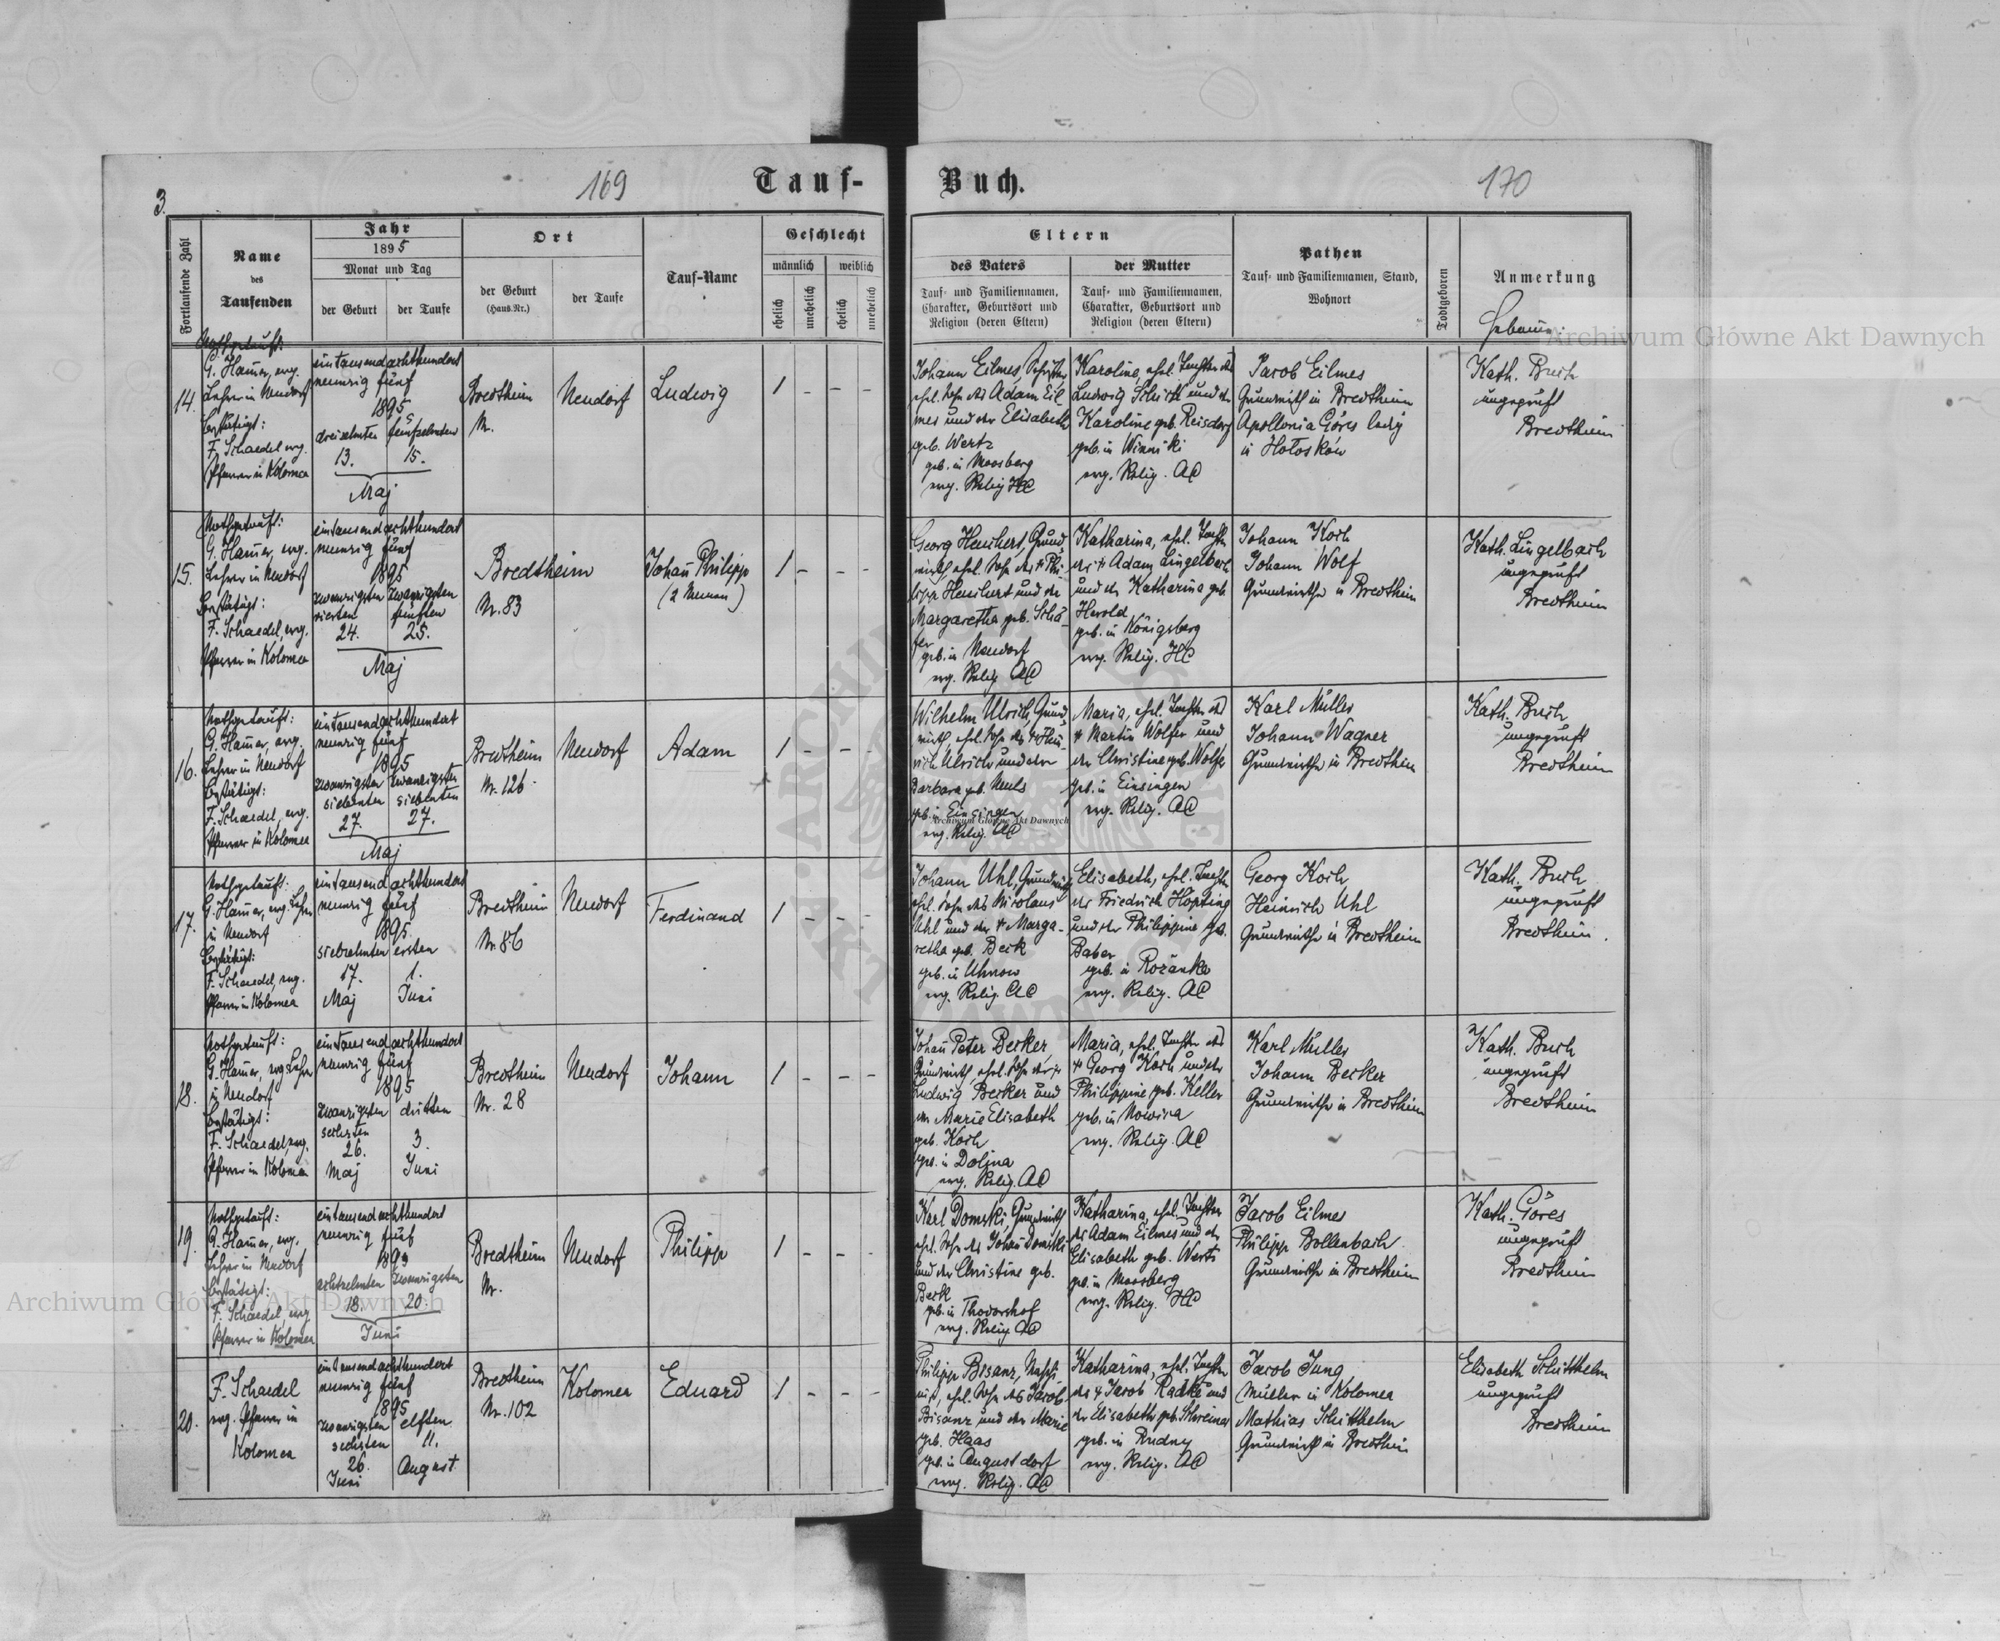 3.
169
Tauf-
Buch.
170
Fortlaufende Zahl
Name
des
Taufenden
Jahr
1895
Monat und Tag
der Geburt
der Taufe
Ort
der Geburt
(Haus-Nr.)
der Taufe
Tauf-Name
Geschlecht
männlich
weiblich
ehelich
unehelich
ehelich
unehelich
Eltern
des Vaters
Tauf- und Familiennamen,
Charakter, Geburtsort und
Religion (deren Eltern)
der Mutter
Tauf- und Familiennamen,
Charakter, Geburtsort und
Religion (deren Eltern)
Pathen
Tauf- und Familiennamen, Stand,
Wohnort
Todtgeboren
Anmerkung
14.
Nothgetauft:
G. Hauer, evg.
Lehrer in Neudorf
Bestätigt:
F. Schaedel evg.
Pfarrer in Kolomea
eintausendachthundert
neunzig fünf
1895
dreizehnten fünfzehnten
13. 15.
Maj
Bredtheim
Nr.
Neudorf
Ludwig
1 - - -
Johann Eilmes,
ehel. Sohn des Adam Eil
mes und der Elisabeth
geb. Wertz
geb. in Moosberg
evg. Relig HC
Karoline, ehel. Tochter des
Ludwig Schick und der
Karoline geb. Reisdorf
geb. in Winniki
evg. Relig. AC
Jacob Eilmes
Grundwirth in Bredtheim
Apollonia Göres ledig
in Hołosków
Kath. Buch
ungeprüft
Bredtheim
15.
Nothgetauft:
G. Hauer, evg.
Lehrer in Neudorf
Bestätigt:
F. Schaedel, evg.
Pfarrer in Kolomea
eintausendachthundert
neunzig fünf
1895
zwanzigsten zwanzigsten
vierten fünften
24. 25.
Maj
Bredtheim
Nr. 83
Johan Philipp
(2 Namen)
1 - - -
Georg Heuchert, Grund
wirth, ehel. Sohn des † Phi
lipp Heuchert und der
Margaretha geb. Schä-
fer
geb. in Neudorf
evg. Relig AC
Katharina, ehel. Tochter
des † Adam Lingelbach
und der Katharina geb
Herold
geb. in Königsberg
evg. Relig. HC
Johann Koch
Johann Wolf
Grundwirthe in Bredtheim
Kath. Lingelbach
ungeprüft
Bredtheim
16.
Nothgetauft:
G. Hauer, evg.
Lehrer in Neudorf
Bestätigt:
F. Schaedel, evg.
Pfarrer in Kolomea
eintausendachthundert
neunzig fünf
1895
zwanzigsten zwanzigsten
siebenten siebenten
27. 27.
Maj
Bredtheim
Nr. 126.
Neudorf
Adam
1 - - -
Wilhelm Ulrich, Grund
wirth, ehel. Sohn des † Hein
rich Ulrich und der
Barbara geb. Neuls
geb. in Einsingen
evg. Relig. AC
Maria, ehel. Tochter des
† Martin Wolfer und
der Christine geb. Wolfer
geb. in Einsingen
evg. Relig. AC
Karl Müller
Johann Wagner
Grundwirthe in Bredtheim
Kath. Buch
ungeprüft
Bredtheim
17.
Nothgetauft:
G. Hauer, evg. Lehrer
in Neudorf
Bestätigt:
F. Schaedel, evg.
Pfarrer in Kolomea
eintausendachthundert
neunzig fünf
1895.
siebzehnten ersten
17. 1.
Maj Juni
Bredtheim
Nr. 86
Neudorf
Ferdinand
1 - - -
Johann Uhl, Grundwirth
ehel. Sohn des Nicolaus
Uhl und der † Marga-
retha geb. Beck
geb. in Uhnow
evg. Relig. AC
Elisabeth, ehel. Tochter
des Friedrich Höpting
und der Philippine geb.
Baber
geb. in Rożanka
evg. Relig. AC
Georg Koch
Heinrich Uhl
Grundwirthe in Bredtheim
Kath. Buch
ungeprüft
Bredtheim.
18.
Nothgetauft:
G. Hauer, evg Lehrer
in Neudorf
Bestätigt:
F. Schaedel, evg.
Pfarrer in Kolomea
eintausendachthundert
neunzig fünf
1895
zwanzigsten dritten
sechsten
26. 3.
Maj Juni
Bredtheim
Nr. 28
Neudorf
Johann
1 - - -
Johan Peter Becker,
Grundwirth, ehel. Sohn der †
Ludwig Becker und
der Marie Elisabeth
geb. Koch
geb. in Dolina
evg. Relig. AC
Maria, ehel. Tochter des
† Georg Koch und der
Philippine geb. Keller
geb. in Nowina
evg. Relig. AC
Karl Müller
Johann Becker
Grundwirthe in Bredtheim
Kath. Buch
ungeprüft
Bredtheim
19.
Nothgetauft:
G. Hauer, evg.
Lehrer in Neudorf
Bestätigt:
F. Schaedel, evg
Pfarrer in Kolomea
eintausendachthundert
neunzig fünf
1895
achtzehnten zwanzigsten
18. 20.
Juni
Bredtheim
Nr.
Neudorf
Philipp
1 - - -
Karl Domski, Grundwirth
ehel. Sohn des Johan Domski
und der Christine geb.
Beck
geb. in Thodorshof
evg. Relig. AC
Katharina, ehel. Tochter
des Adam Eilmes und der
Elisabeth geb. Wertz
geb. in Moosberg
evg. Relig. HC
Jacob Eilmes
Philipp Bollenbach
Grundwirthe in Bredtheim
Kath. Göres
ungeprüft
Bredtheim
20.
F. Schaedel
evg. Pfarrer in
Kolomea
eintausendachthundert
neunzig fünf
1895
zwanzigsten elften
sechsten 11.
26. August
Juni
Bredtheim
Nr. 102
Kolomea
Eduard
1 - - -
Philipp Bisanz,
ehel. Sohn des Jacob
Bisanz und der Marie
geb. Haas
geb. in Augustdorf
evg. Relig. AC
Katharina, ehel. Tochter
des † Jacob Radke und
der Elisabeth geb. Schreiner
geb. in Rudny
evg. Relig. AC
Jacob Jung
Müller in Kolomea
Mathias Schitthelm
Grundwirth in Bredtheim
Elisabeth Schitthelm
ungeprüft
Bredtheim
Archiwum Główne Akt Dawnych
Archiwum Główne Akt Dawnych
Archiwum Główne Akt Dawnych